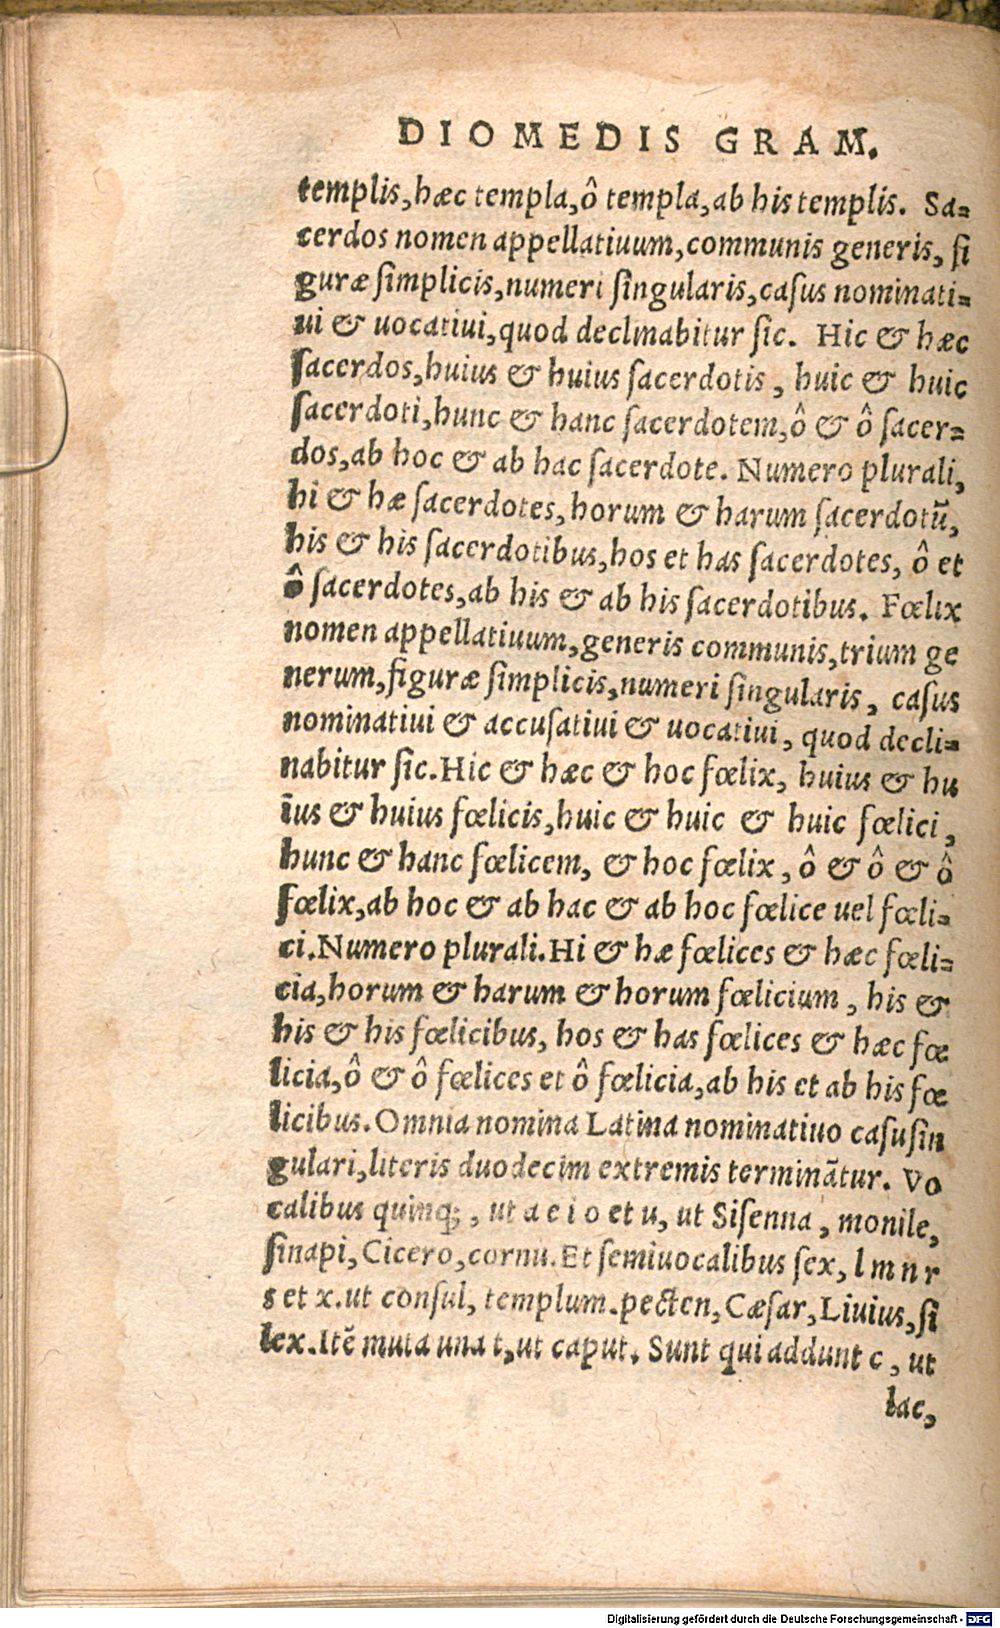 DIOMEDIS GRAM.
templis,hæc templa,ô templa,ab his templis. Sa=
cerdos nomen appellatiuum,communis generis, fi
guræ ſimplicis,numeri ſingularis,caſus nominati=
ui & uocatiui,quod declinabitur ſic. Hic & hæc
ſacerdos,huius & huius ſacerdotis, huic & huic
ſacerdoti,hunc & hanc ſacerdotem,ô & ô ſacer=
dos,ab hoc & ab hac ſacerdote. Numero plurali,
hi & hæ ſacerdotes,horum & harum ſacerdotũ,
his & his ſacerdotibus,hos et has ſacerdotes, ô et
ô ſacerdotes,ab his & ab his ſacerdotibus. Fœlix
nomen appellatiuum,generis communis,trium ge
nerum,figuræ ſimplicis,numeri ſingularis, caſus
nominatiui & accuſatiui & uocatiui, quod decli=
nabitur ſic.Hic & hæc & hoc fœlix, huius & hu
ius & huius fœlicis,huic & huic & huic fœlici,
hunc & hanc fœlicem, & hoc fœlix, ô & ô & ô
fœlix,ab hoc & ab hac & ab hoc fœlice uel fœli=
ci.Numero plurali.Hi & hæ fœlices & hæc fœli=
cia,horum & harum & horum fœlicium, his &
his & his fœlicibus, hos & has fœlices & hæc fœ
licia,ô & ô fœlices et ô fœlicia,ab his et ab his fœ
licibus.Omnia nomina Latina nominatiuo caſu ſin
gulari,literis duodecim extremis terminãtur. Vo
calibus quinq;, ut a e i o et u, ut Siſenna, monile,
ſinapi,Cicero,cornu.Et ſemiuocalibus ſex, l m n r
s et x.ut conſul, templum.pecten,Cæſar,Liuius,ſi
lex.Itẽ muta una t,ut caput. Sunt qui addunt c, ut
lac,
Digitalisierung gefördert durch die Deutsche Forschungsgemeinschaft - DFG